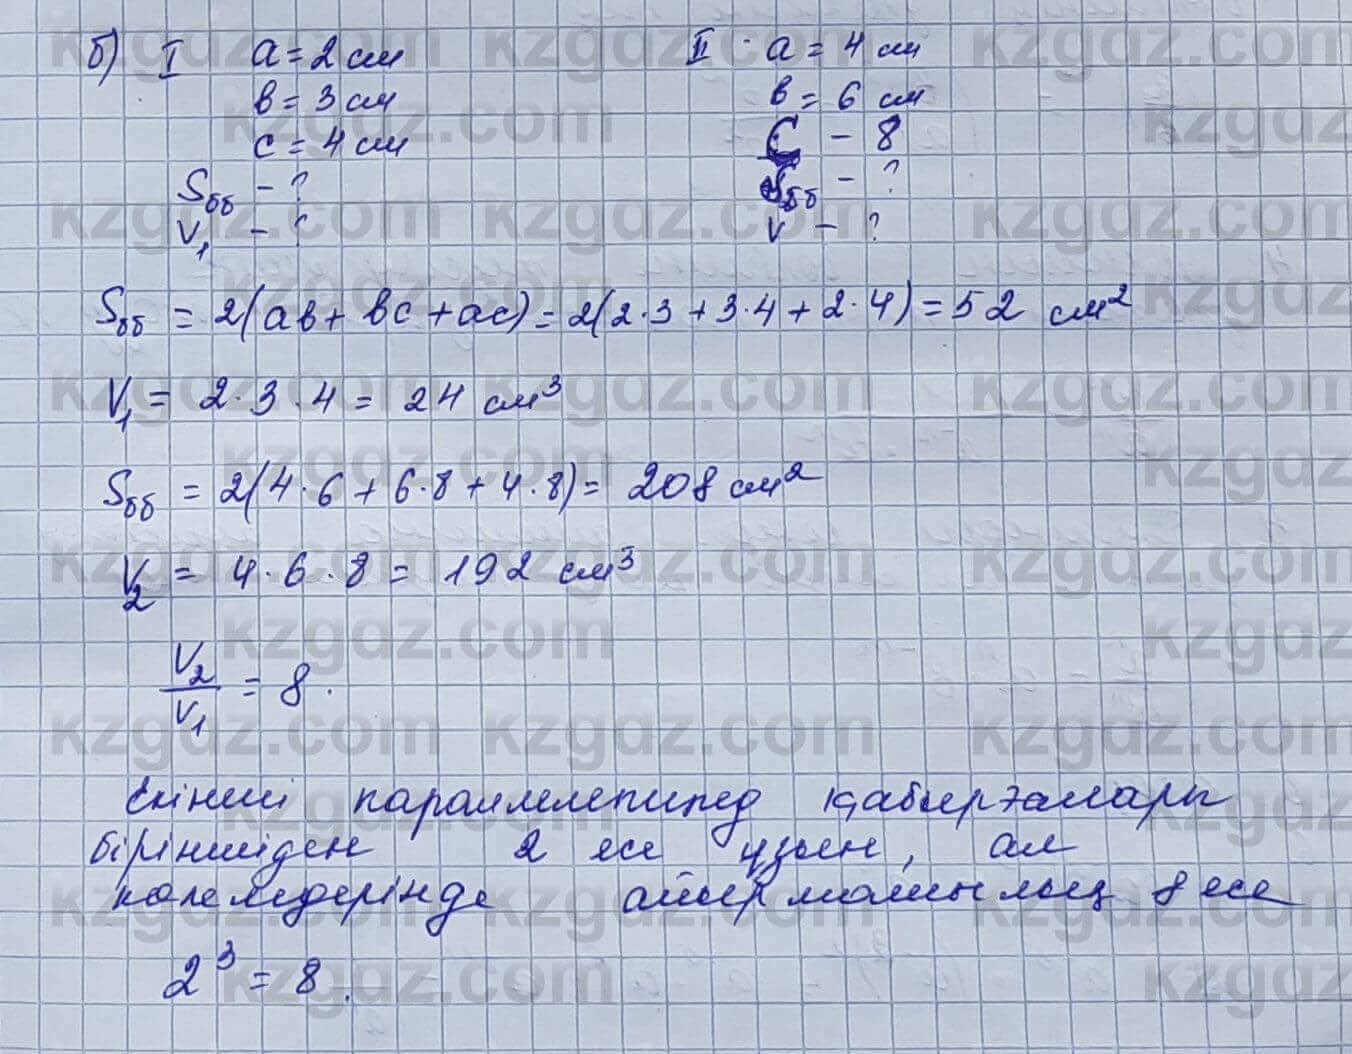 б) I a = 2 см II a = 4 см
в = 3 см в = 6 см
с = 4 см С - 8
Sбб - ? Sбб - ?
V₁ - ? V - ?
Sбб = 2(ав + вс + ас) = 2(2·3 + 3·4 + 2·4) = 52 см²
V₁ = 2·3·4 = 24 см³
Sбб = 2(4·6 + 6·8 + 4·8) = 208 см²
V₂ = 4·6·8 = 192 см³
V₂/V₁ = 8.
Екінші параллелепипед қабырғалары
біріншіден 2 есе ұзын, ал
көлемдерінде айырмашылық 8 есе
2³ = 8.
kzgdz.com